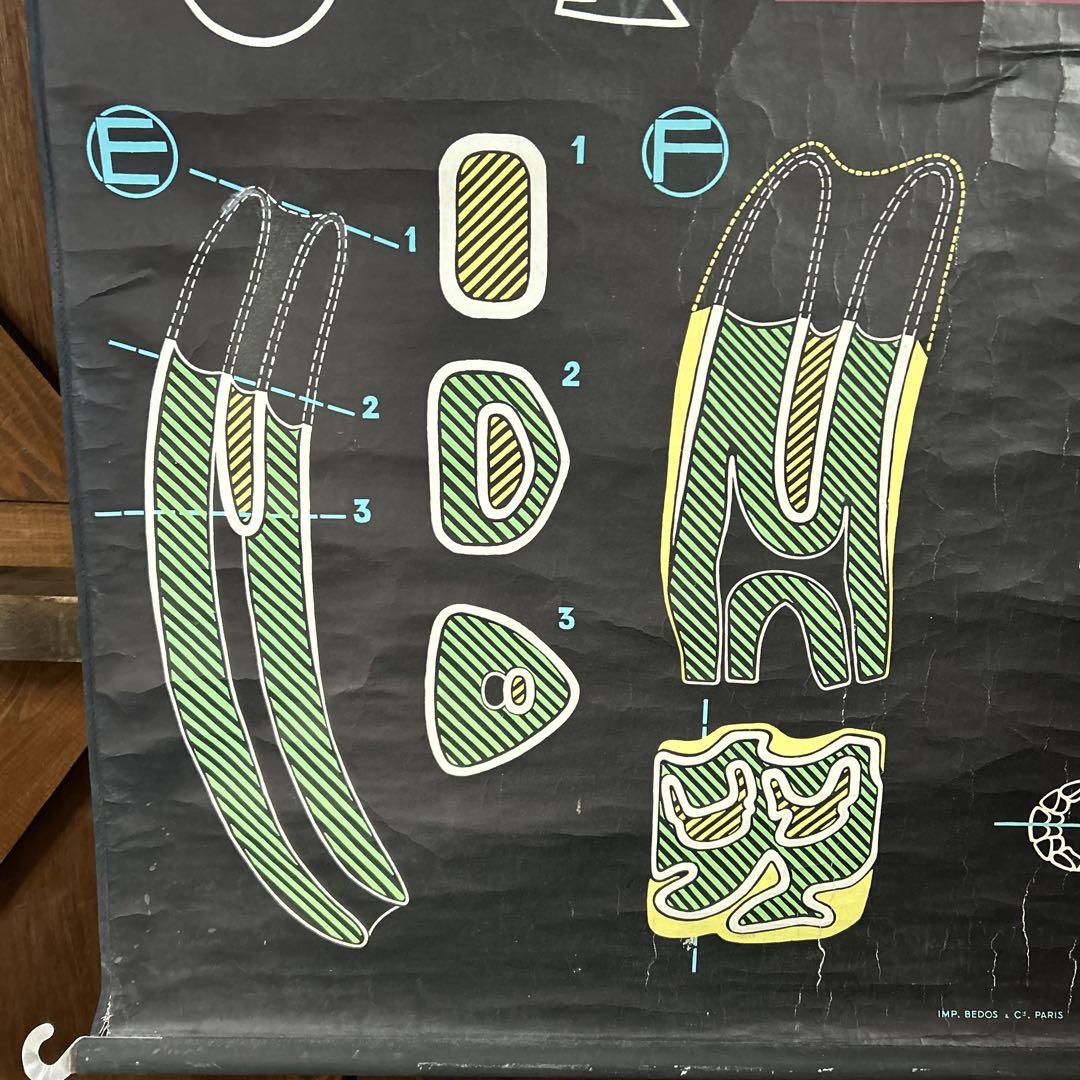 E
1
2
3
1
2
3
F
IMP. BEDOS & Cie. PARIS